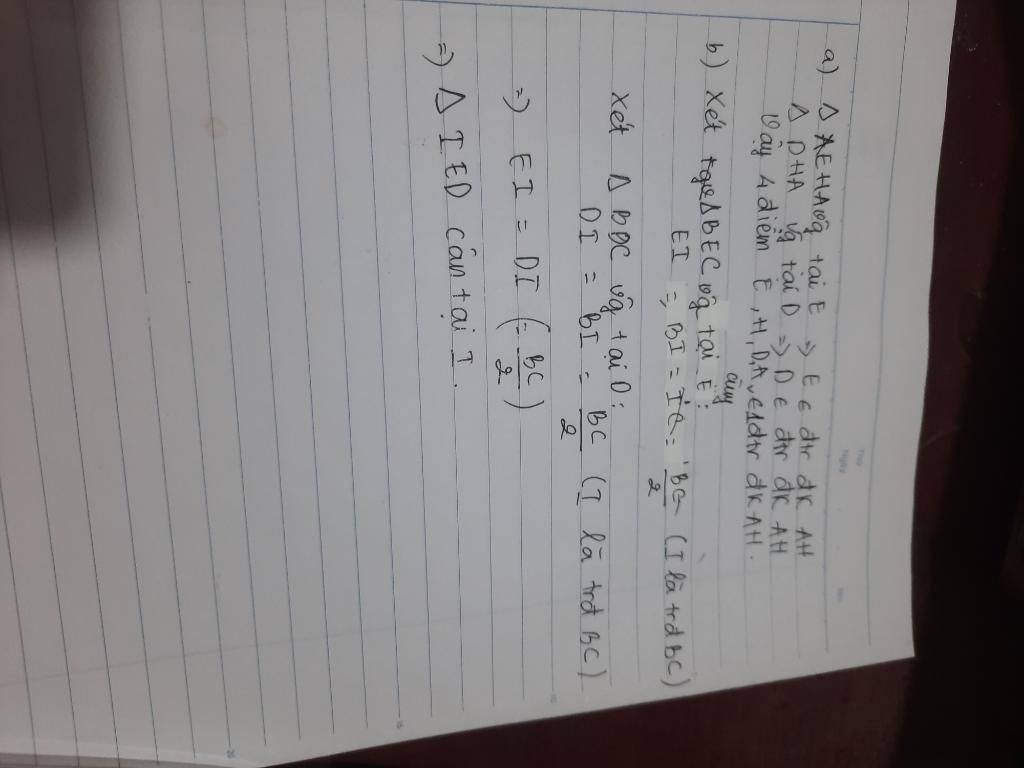 a) Δ AEHA vg tại E => E ∈ đtr đk AH
Δ DHA vg tại D => D ∈ đtr đk AH
Vậy 4 điểm E, H, D, A cùng ∈ 1 đtr đk AH.
b) Xét Δ BEC vg tại E:
EI = BI = IC = BC/2 (I là trđ BC)
Xét Δ BDC vg tại D:
DI = BI = BC/2 (I là trđ BC)
=> EI = DI (= BC/2)
=> Δ IED cân tại I.